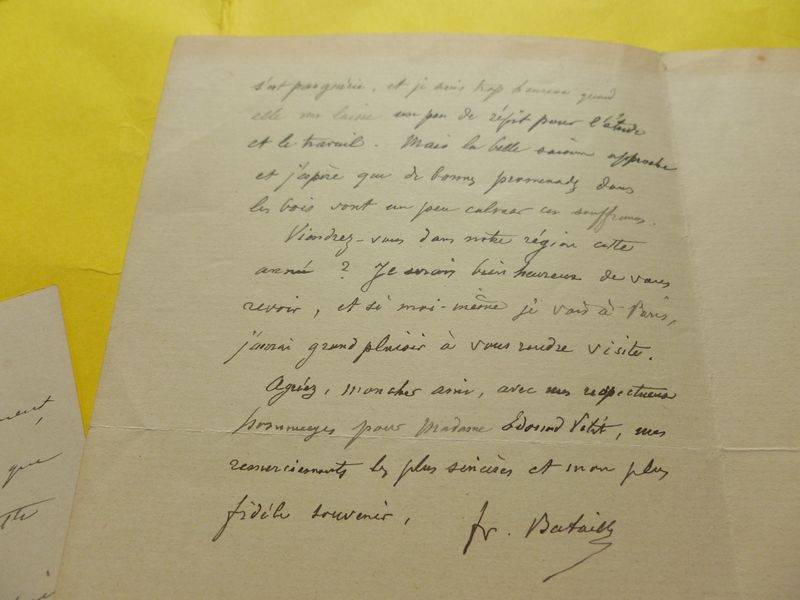 et je suis trop heureux quand
elle me laisse un peu de répit pour l'étude
et le travail. Mais la belle saison approche
et j'espère que de bonnes promenades dans
les bois vont un peu calmer ces souffrances.
Viendrez-vous dans notre région cette
année ? Je serais bien heureux de vous
revoir, et si moi-même je vais à Paris,
j'aurai grand plaisir à vous rendre visite.
Agréez, mon cher ami, avec mes respectueux
hommages pour Madame Edouard Petit, mes
remerciements les plus sincères et mon plus
fidèle souvenir,
fr. Bataille
que